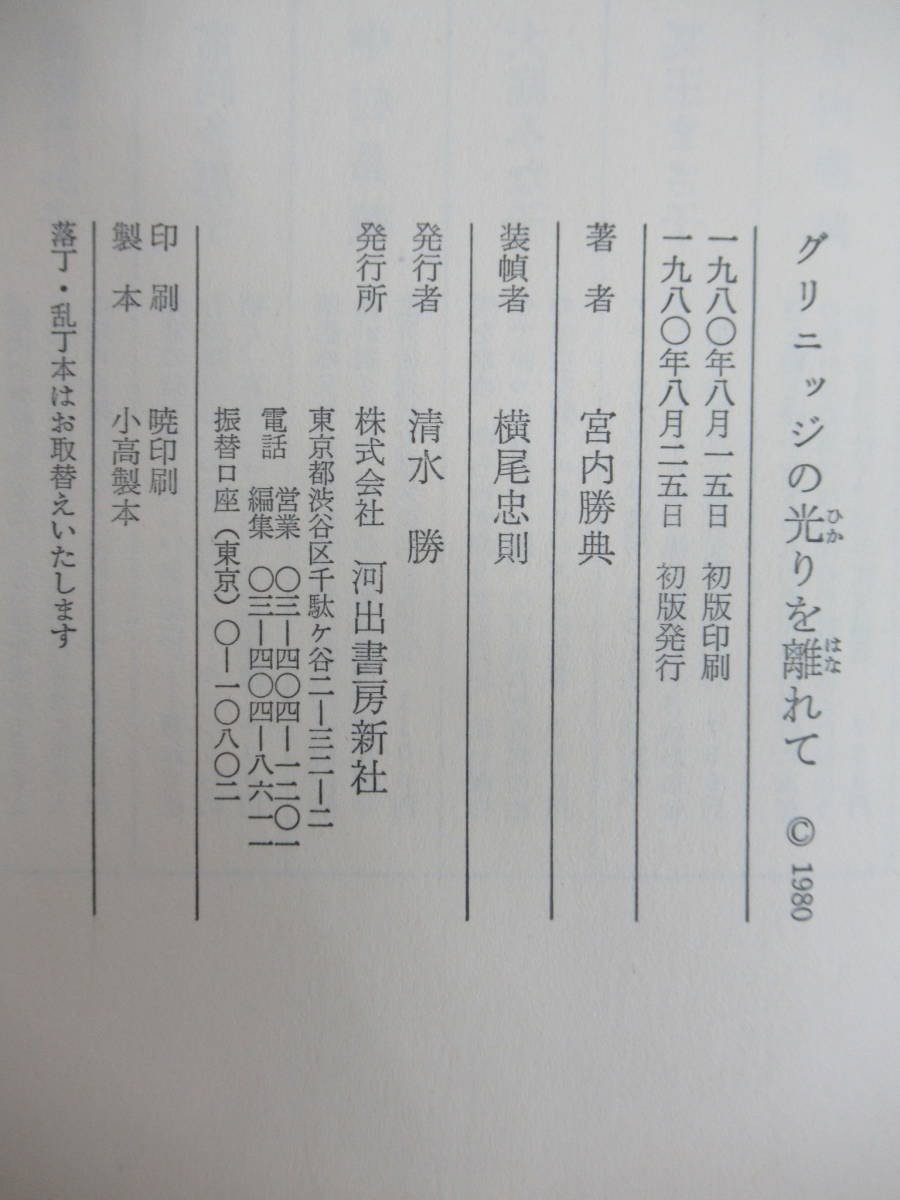 グリニッジの光りを離れて © 1980
一九八〇年八月一五日 初版印刷
一九八〇年八月二五日 初版発行
著者 宮内勝典
装幀者 横尾忠則
発行者 清水 勝
発行所 株式会社 河出書房新社
東京都渋谷区千駄ヶ谷二ー三二ー二
電話 営業 〇三ー四〇四ー一二〇一
編集 〇三ー四〇四ー八六一一
振替口座(東京)〇ー一〇八〇二
印刷 暁印刷
製本 小高製本
落丁・乱丁本はお取替えいたします